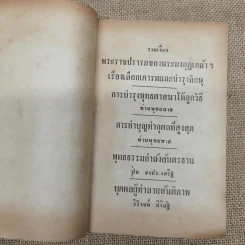 รวมเรื่อง
พระราชปรารภของพระมงกุฎเกล้า ฯ
เรื่องเลือกเคารพและบำรุงภิกษุ
การบำรุงพุทธศาสนาให้ถูกวิธี
ท่านพุทธทาส
การทำบุญทำกุศลที่สูงสุด
ท่านพุทธทาส
พุทธธรรมกำลังอันตรธาน
ปุ่น จงประเสริฐ
บุคคลผู้ทำลายสันติภาพ
วิโรจน์ ศิริอัฐ